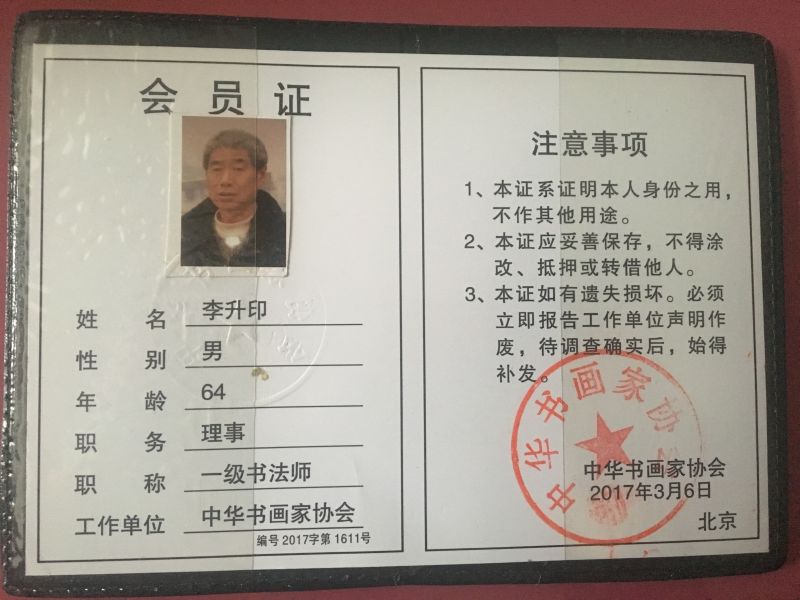 会员证
姓名 李升印
性别 男
年龄 64
职务 理事
职称 一级书法师
工作单位 中华书画家协会
编号 2017字第 1611号
注意事项
1、本证系证明本人身份之用，
不作其他用途。
2、本证应妥善保存，不得涂
改、抵押或转借他人。
3、本证如有遗失损坏。必须
立即报告工作单位声明作
废，待调查确实后，始得
补发。
中华书画家协会
中华书画家协会
2017年3月6日
北京